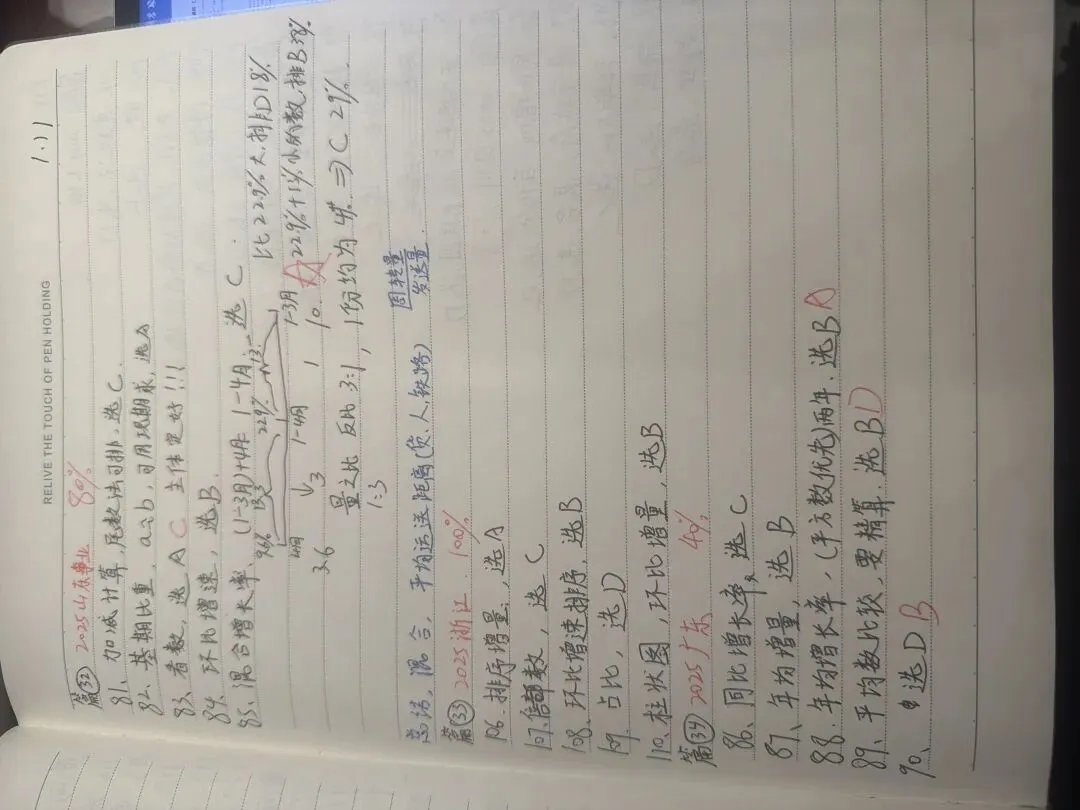 RELIVE THE TOUCH OF PEN HOLDING
1.11
篇㉜ 2025山东事业 80%
81、加减计算,尾数法可排,选C.
82、基期比重,a>b,可用现期求,选A
83、看数,选A C 主体定好!!!
84、环比增速,选B.
85、混合增长率、(1-3月)+4月=1-4月,选C.
9.6% 13.3 22.9% 13.- 比22.9%大,排D18%
4月 1-4月 1-3月 22.9%+13%小的数,排B38%
3.6 3 1 10.
量之比 反比3:1,1份均为4% ⇒ C 29%.
1:3
总结,混合,平均运送距离(货,人,铁路) 周转量
发送量.
篇㉝ 2025浙江 100%
106、排序增量,选A
107、倍数,选C
108、环比增速排序,选B
109、占比,选D
110、柱状图,环比增量,选B
篇㉞ 2025广东 40%
86、同比增长率,选C
87、年均增量,选B
88、年均增长率,(平方数优先)两年.选B A
89、平均数比较,要精算,选B D
90、选D B